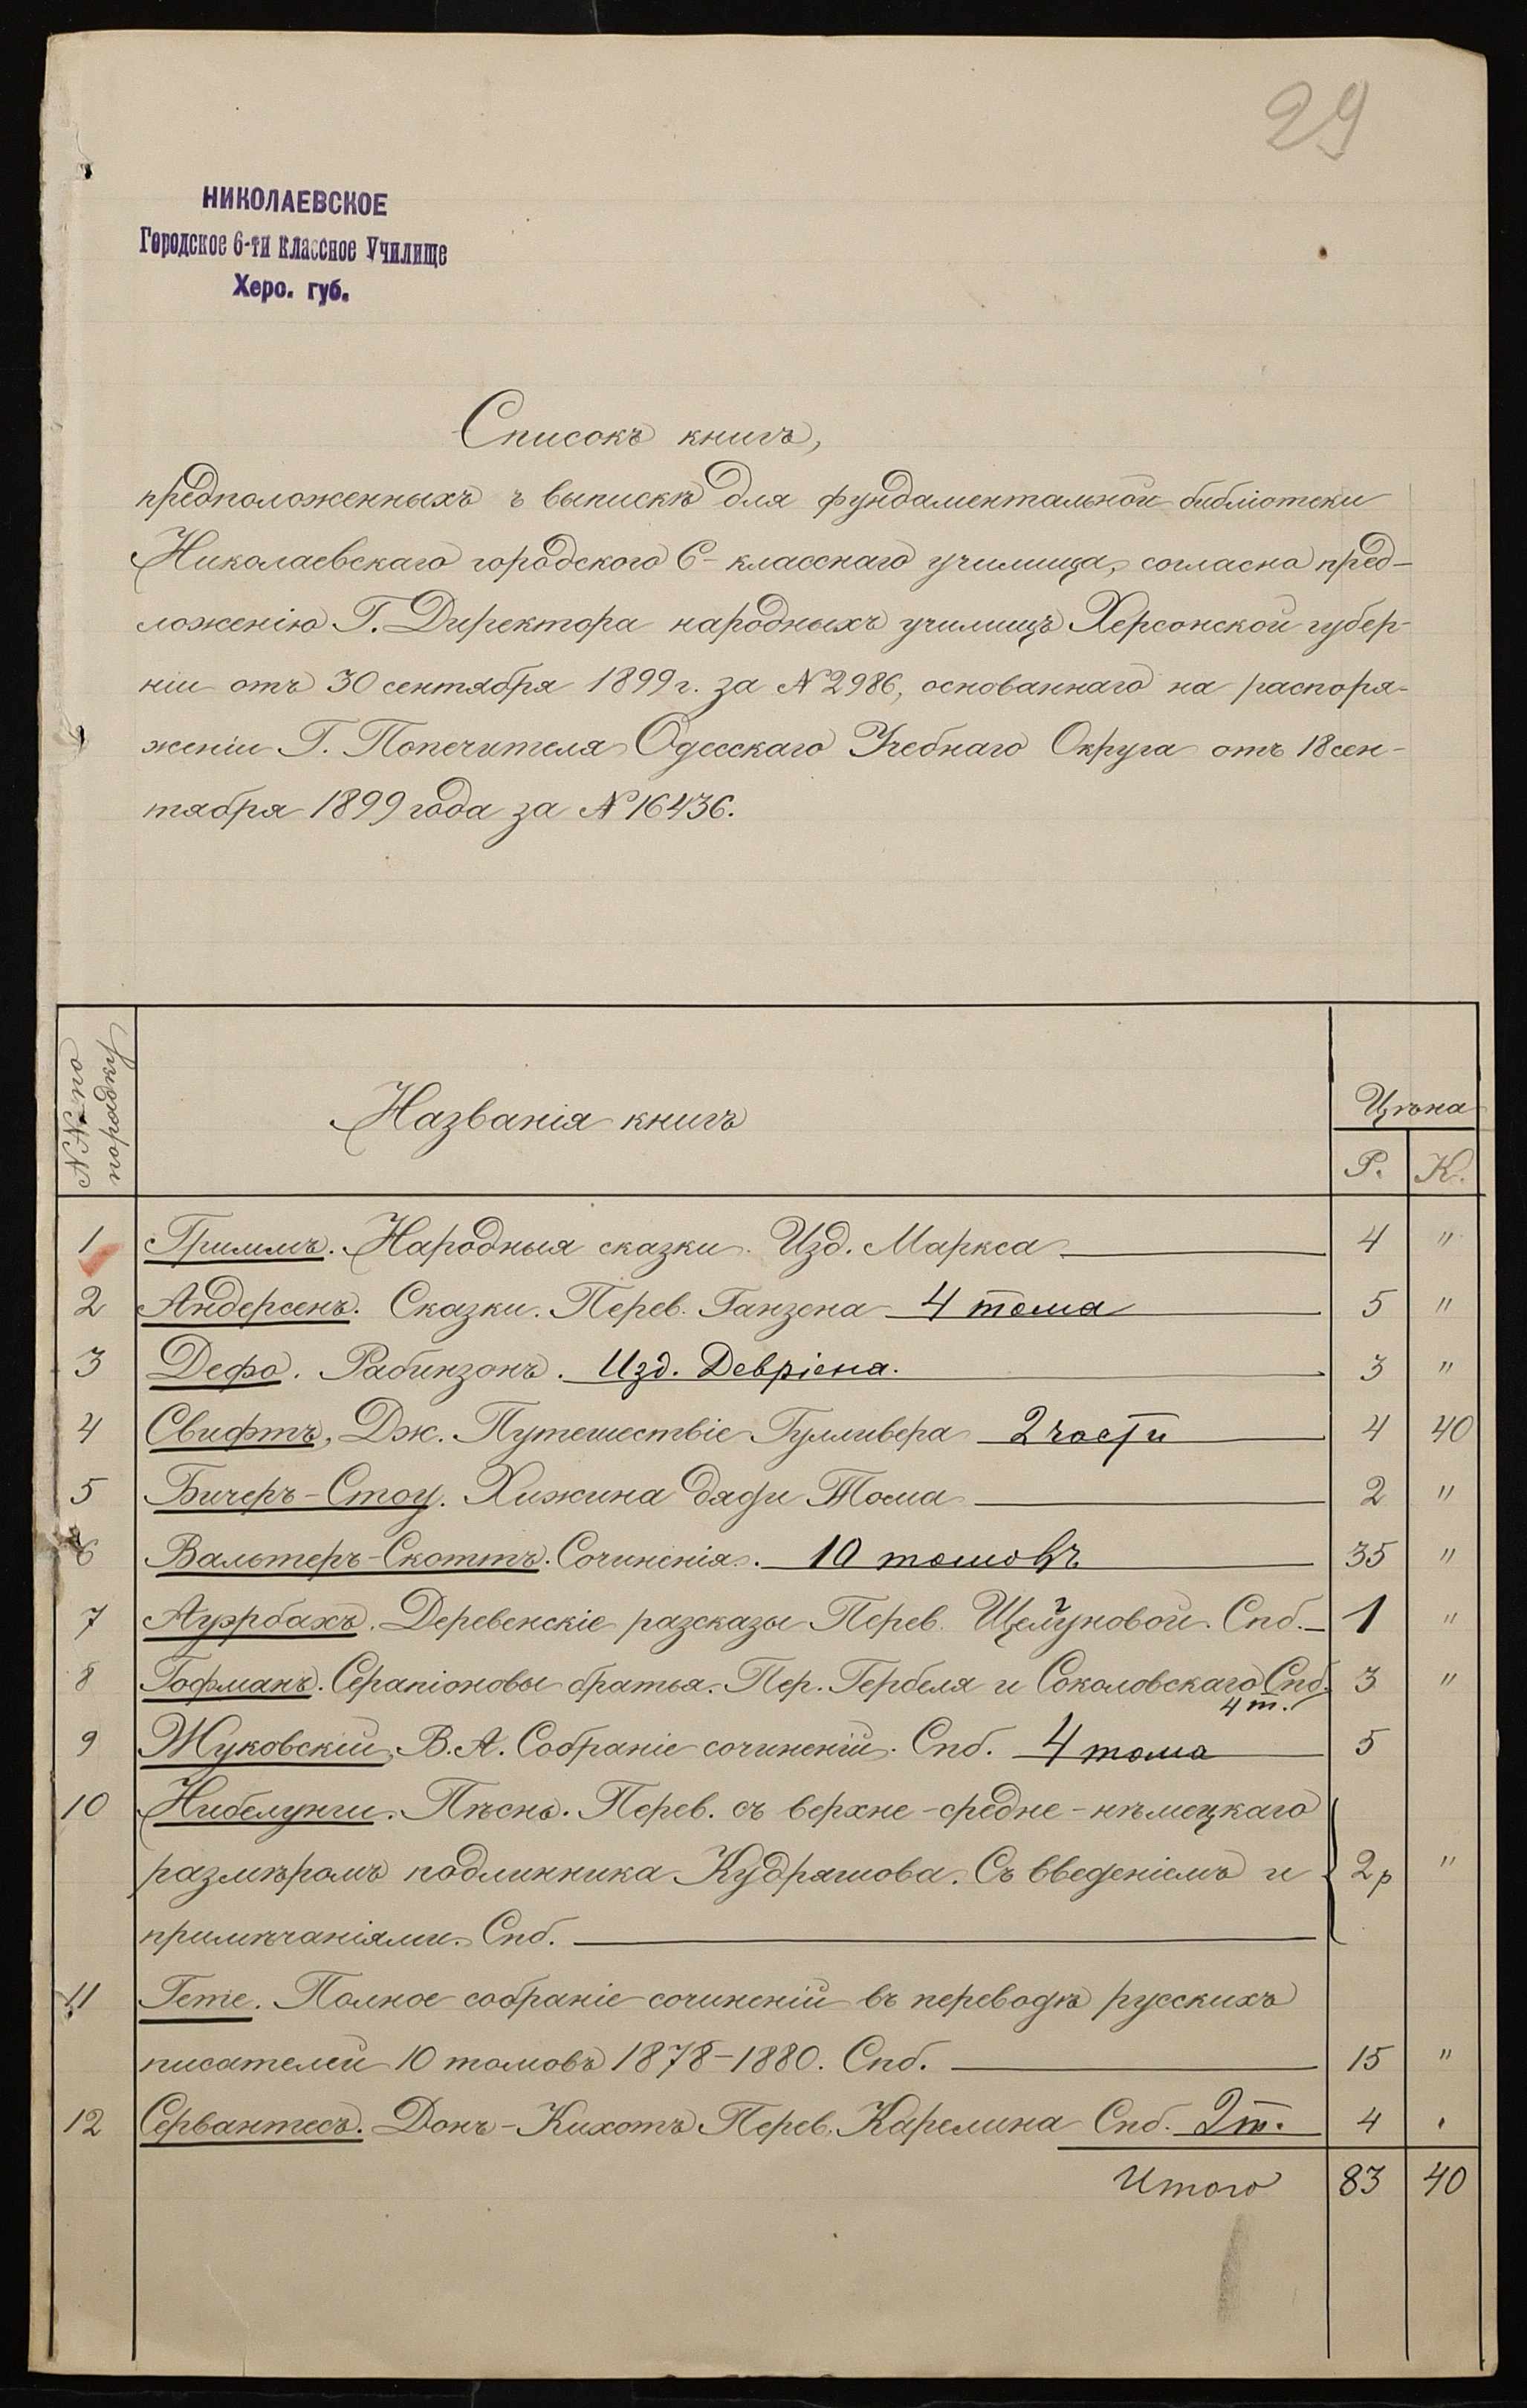 29
НИКОЛАЕВСКОЕ
Городское 6-ти классное Училище
Херс. губ.
Списокъ книгъ,
предположенныхъ къ выпискѣ для фундаментальной библіотеки
Николаевскаго городского 6-класснаго училища, согласно пред-
ложенію Г. Директора народныхъ училищъ Херсонской губер-
ніи отъ 30 сентября 1899 г. за № 2986, основаннаго на распоря-
женіи Г. Попечителя Одесскаго Учебнаго Округа отъ 18 сен-
тября 1899 года за № 16436.
№№ по порядку
Названія книгъ
Цѣна
Р. К.
1 Гриммъ. Народныя сказки. Изд. Маркса 4 "
2 Андерсенъ. Сказки. Перев. Ганзена 4 тома 5 "
3 Дефо. Рабинзонъ. Изд. Девріена. 3 "
4 Свифтъ, Дж. Путешествіе Гулливера 2 части 4 40
5 Бичеръ-Стоу. Хижина дяди Тома 2 "
6 Вальтеръ-Скоттъ. Сочиненія. 10 томовъ 35 "
7 Ауэрбахъ. Деревенскіе разсказы Перев. Щелгуновой. Спб. 1 "
8 Гофманъ. Серапіоновы братья. Пер. Гербеля и Соколовскаго Спб. 3 "
4 т.
9 Жуковскій, В. А. Собраніе сочиненій. Спб. 4 тома 5
10 Нибелунги. Пѣснь. Перев. съ верхне-средне-нѣмецкаго
размѣромъ подлинника Кудряшова. Съ введеніемъ и 2 р "
примѣчаніями. Спб.
11 Гете. Полное собраніе сочиненій въ переводѣ русскихъ
писателей 10 томовъ 1878-1880. Спб. 15 "
12 Сервантесъ. Донъ-Кихотъ Перев. Карелина Спб. 2 т. 4 "
Итого 83 40